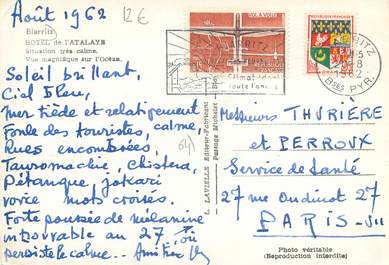 Août 1962
12€
Biarritz
HOTEL de l'ATALAYE
Situation très calme.
Vue magnifique sur l'Océan.
Soleil brillant,
Ciel bleu,
Mer tiède et relativement
Foule des touristes, calme,
Rues encombrées,
Tauromachie, Chistera,
Pétanque, jokari
voire mots croisés.
Forte poussée de mélanine
introuvable au 27, où
persiste le calme...
64
L. LAVIELLE Editeur-Fabricant
Passage Michelet
Climat
toute l'année
Bses PYR.
Messieurs THURIÈRE
et PERROUX
Service de Santé
27 rue Oudinot 27
PARIS-VII
Photo véritable
(Reproduction interdite)